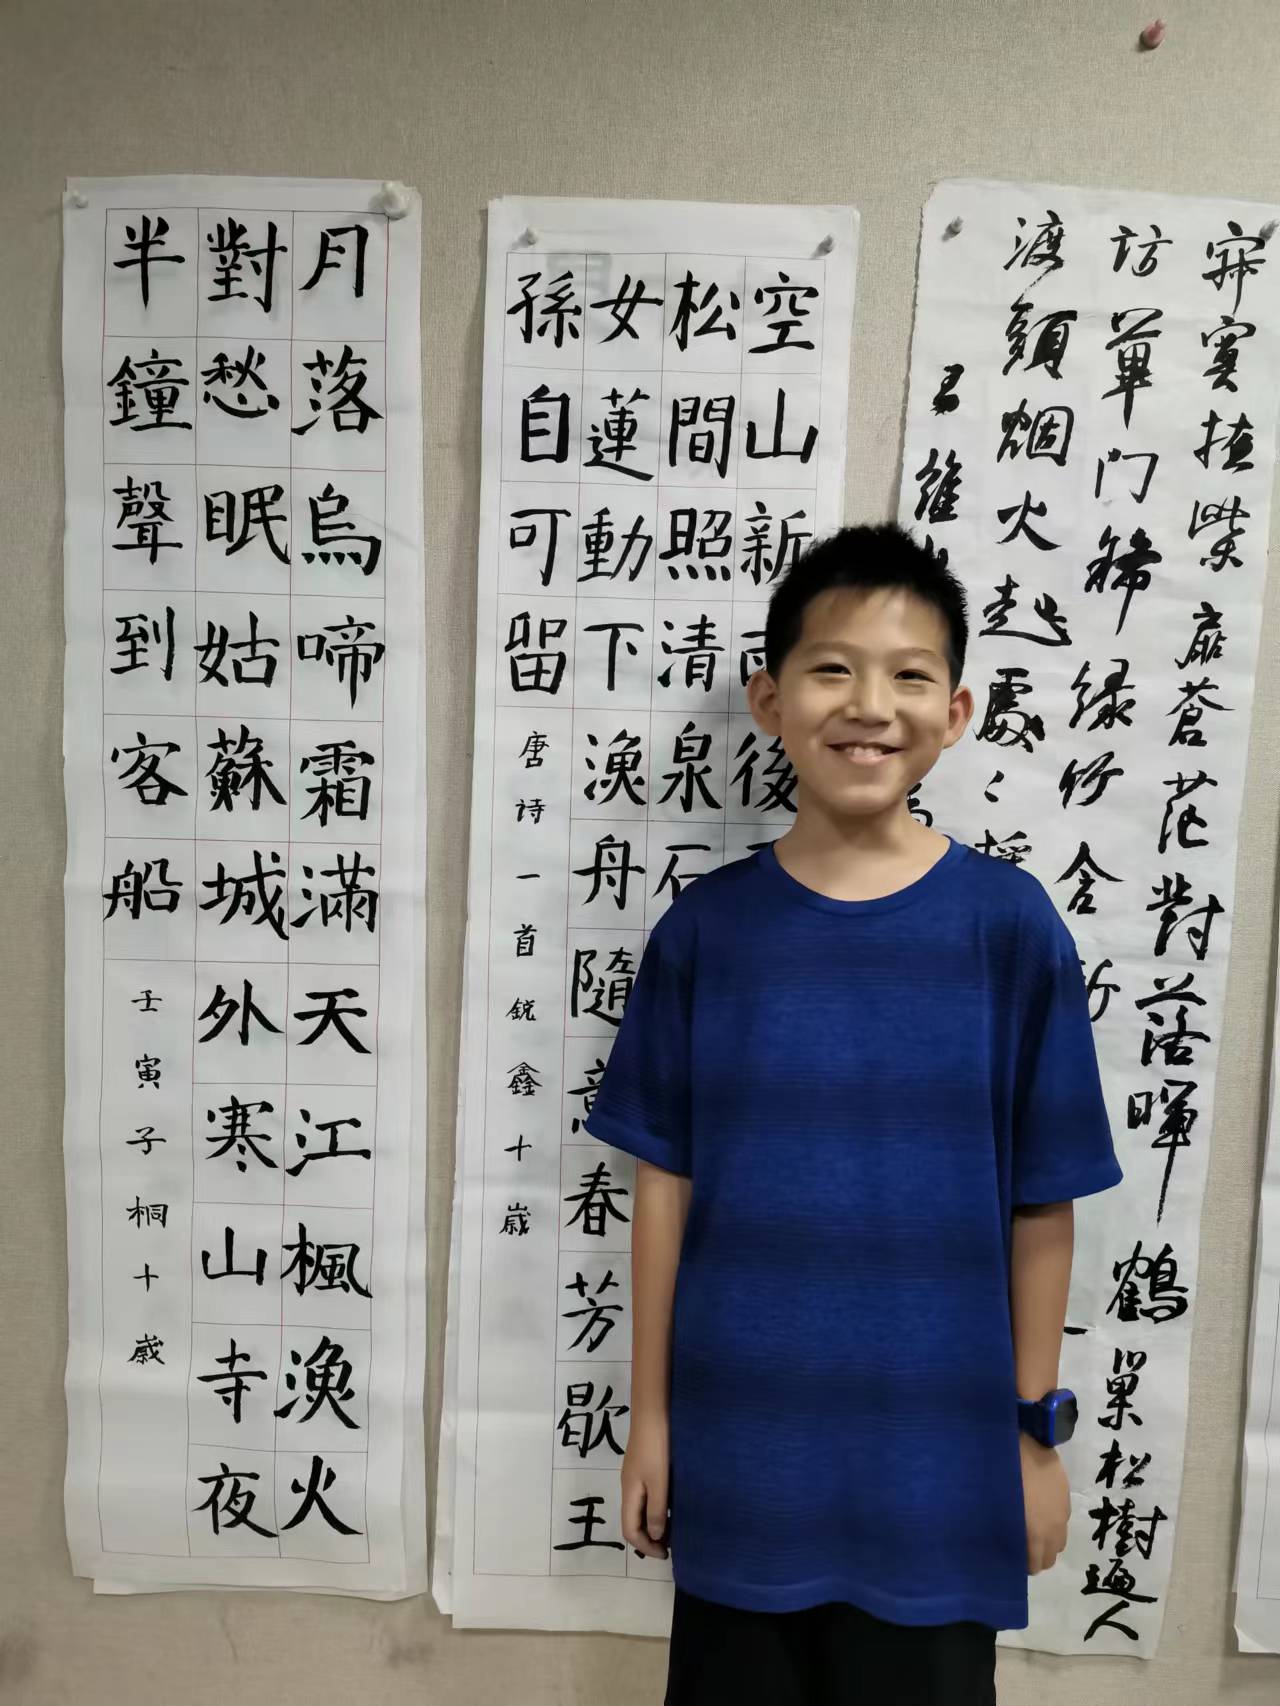 月落烏啼霜滿天江楓漁火
對愁眠姑蘇城外寒山寺夜
半鐘聲到客船
壬寅子桐十歲
空山新雨後
松間照清泉石
女蓮動下漁舟隨意春芳歇王
孫自可留
唐诗一首銳鑫十歲
寂寞掩柴扉蒼茫對落暉鶴巢松樹遍人
訪蓽门稀緑竹含新
渡頭烟火起處々採
王維